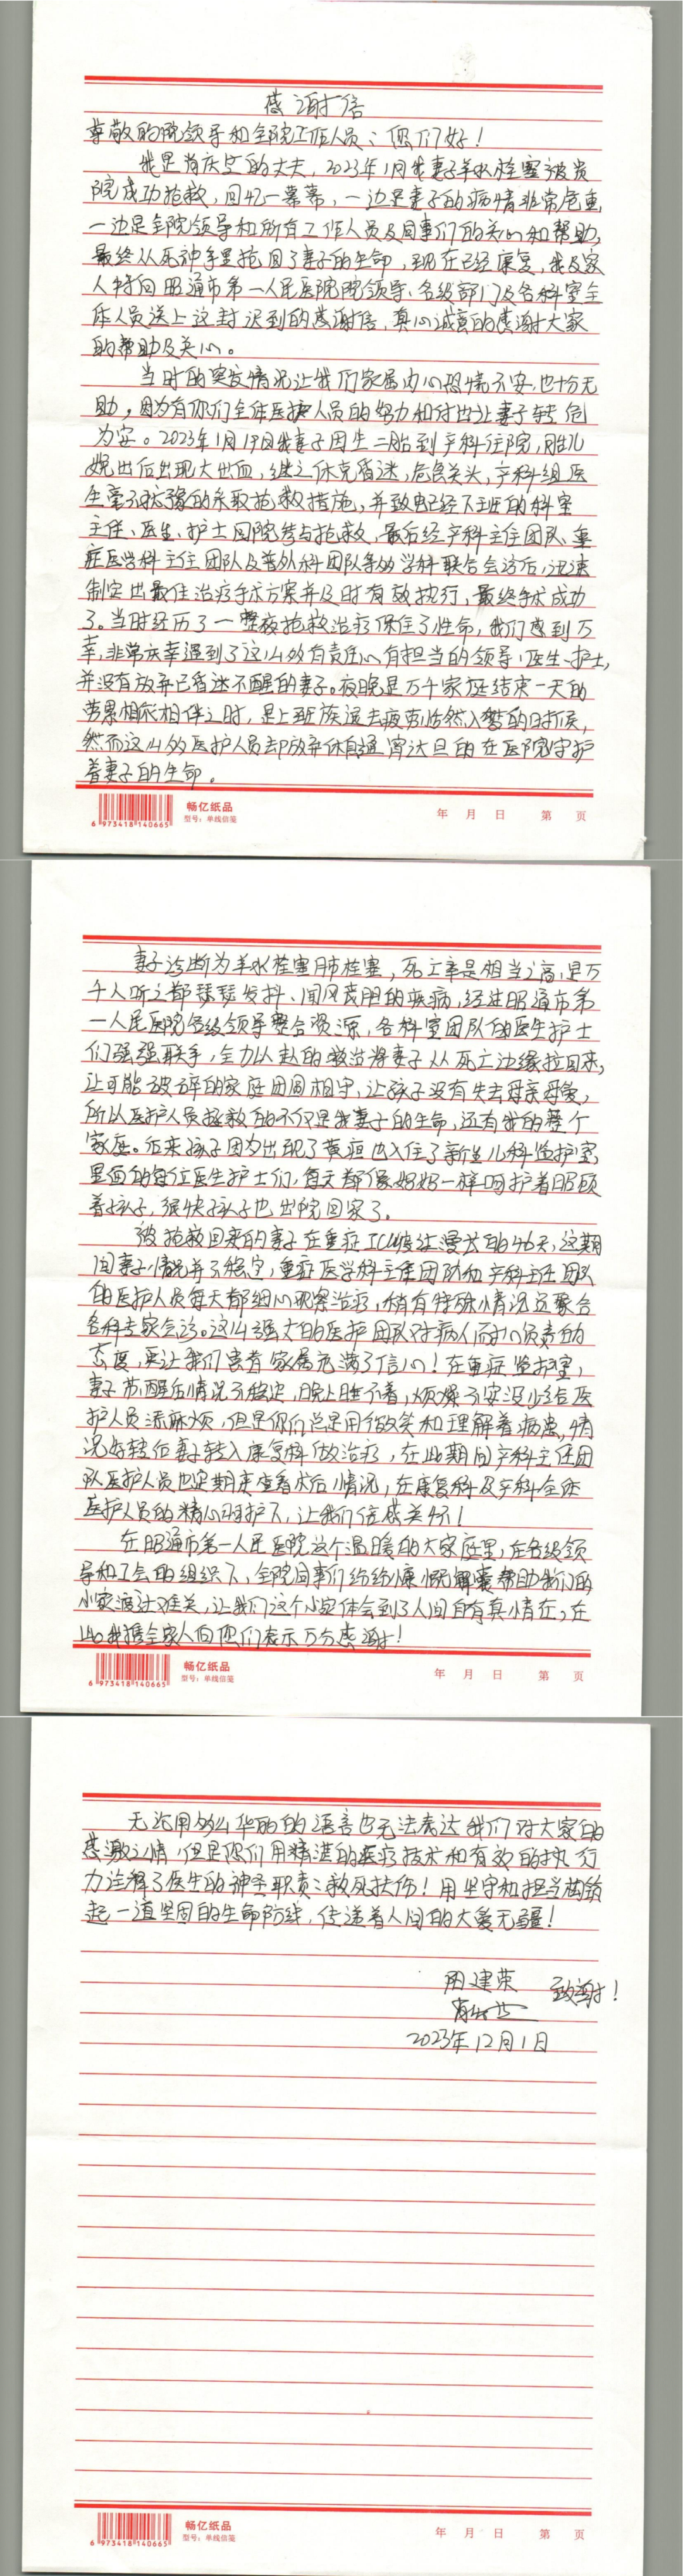 感谢信
尊敬的院领导和全院工作人员：您们好！
我是肖庆兰的丈夫，2023年1月我妻子羊水栓塞被贵
院成功抢救，回忆一幕幕，一边是妻子的病情非常危重，
一边是全院领导和所有工作人员及同事们的关心和帮助，
最终从死神手里抢回了妻子的生命，到现在已经康复，我及家
人特向昭通市第一人民医院院领导、各级部门及各科室全
体人员送上这封迟到的感谢信，真心诚意的感谢大家
的帮助及关心。
当时的突发情况让我们家属内心恐惧不安，也十分无
助，因为有你们全体医护人员的努力和付出让妻子转危
为安。2023年1月19日我妻子因生二胎到产科住院，胎儿
娩出后出现大出血，继之休克昏迷，危急关头，产科组医
生毫不犹豫的采取抢救措施，并致电已经下班的科室
主任、医生、护士回院参与抢救，最后经产科主任团队、重
症医学科主任团队及普外科团队等多学科联合会诊后，迅速
制定出最佳治疗手术方案并及时有效执行，最终手术成功
了。当时经历了一整夜抢救治疗保住了性命，我们感到万
幸，非常庆幸遇到了这么多有责任心有担当的领导、医生、护士，
并没有放弃已昏迷不醒的妻子。夜晚是万千家庭结束一天的
劳累相依相伴之时，是上班族退去疲劳恬然入梦的时候，
然而这么多医护人员却放弃休息通宵达旦的在医院守护
着妻子的生命。
6 973418 140665
畅亿纸品
型号：单线信笺
年 月 日 第 页
妻子诊断为羊水栓塞肺栓塞，死亡率是相当之高，是万
千人听之都瑟瑟发抖、闻风丧胆的疾病，经过昭通市第
一人民医院各级领导整合资源，各科室团队的医生护士
们强强联手，全力以赴的救治将妻子从死亡边缘拉回来，
让可能破碎的家庭团圆相守，让孩子没有失去母亲母爱，
所以医护人员拯救的不仅是我妻子的生命，还有我的整个
家庭。后来孩子因为出现了黄疸也入住了新生儿科监护室，
里面的每位医生护士们，每天都像妈妈一样呵护着照顾
着孩子，很快孩子也出院回家了。
被抢救回来的妻子在重症ICU度过漫长的46天，这期
间妻子情况并不稳定，重症医学科主任团队和产科主任团队
的医护人员每天都细心观察治疗，稍有特殊情况还聚合
各科专家会诊。这么强大的医护团队对病人耐心负责的
态度，更让我们患者家属充满了信心！在重症监护室，
妻子苏醒后情况不稳定，晚上睡不着，烦燥不安没少给医
护人员添麻烦，但是你们总是用微笑和理解着病患，情
况好转后妻子转入康复科做治疗，在此期间产科主任团
队医护人员也定期来查看术后情况，在康复科及产科全体
医护人员的精心呵护下，让我们倍感美好！
在昭通市第一人民医院这个温暖的大家庭里，在各级领
导和工会的组织下，全院同事们纷纷慷慨解囊帮助我们的
小家渡过难关，让我们这个小家体会到了人间自有真情在，在
此我携全家人向您们表示万分感谢！
6 973418 140665
畅亿纸品
型号：单线信笺
年 月 日 第 页
无论用多么华丽的语言也无法表达我们对大家的
感激之情，但是您们用精湛的医疗技术和有效的执行
力诠释了医生的神圣职责：救死扶伤！用坚守和担当构筑
起一道坚固的生命防线，传递着人间的大爱无疆！
周建荣 致谢！
肖庆兰
2023年12月1日
6 973418 140665
畅亿纸品
型号：单线信笺
年 月 日 第 页